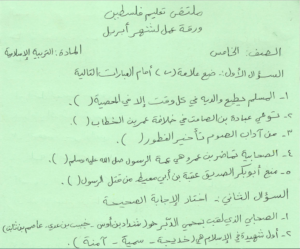 ملتقى تعليم فلسطين
ورقة عمل لشهر أبريل
الصف: الخامس المادة: التربية الإسلامية
السؤال الأول: ضع علامة (س) أمام العبارات التالية
١- المسلم يطيع والديه في كل وقت إلا في المعصية ( ).
٢- توفي عبادة بن الصامت في خلافة عمر بن الخطاب ( ).
٣- من آداب الصوم تأخير الفطور ( ).
٤- الصحابية تماضر بن عمرو هي عمة الرسول صلى الله عليه وسلم ( ).
٥- منع أبو بكر الصديق عقبة بن أبي معيط من قتل الرسول ( ).
السؤال الثاني: اختار الإجابة الصحيحة
١- الصحابي الذي لقب بحمي الدبر هو: شداد بن أوس - خبيب بن عدي - عاصم بن ثابت
٢- أول شهيدة في الإسلام هي: خديجة - سمية - آمنة ( )